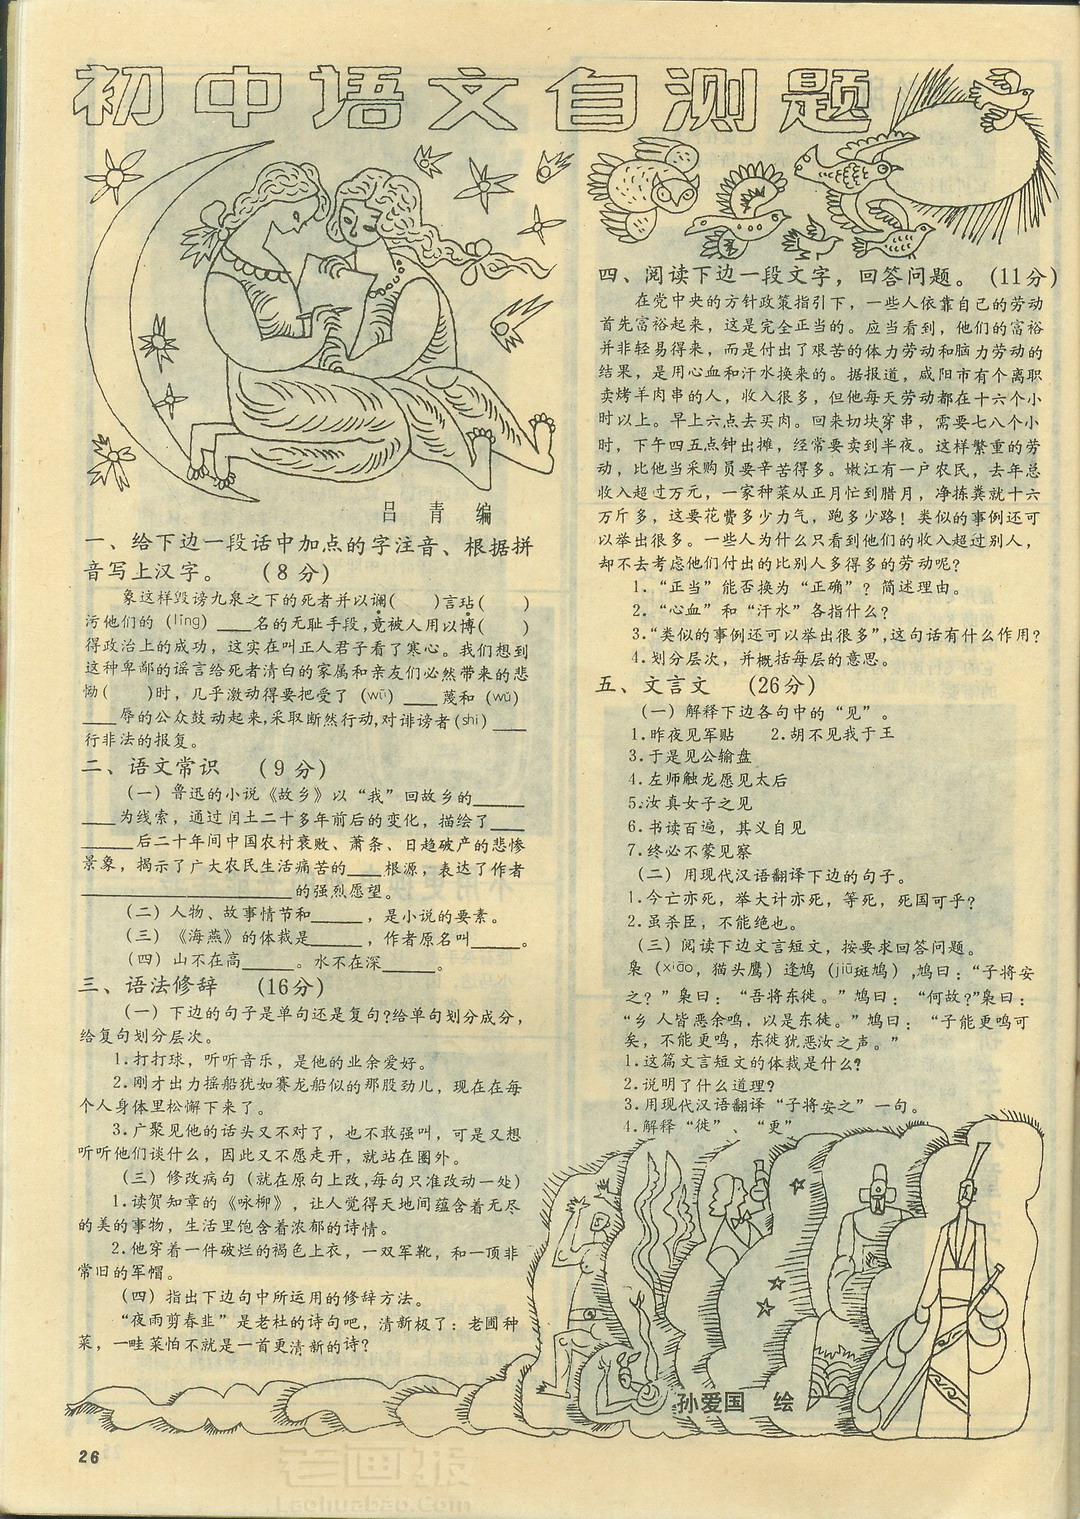 初中语文自测题
吕青 编
一、给下边一段话中加点的字注音、根据拼
音写上汉字。 （8分）
象这样毁谤九泉之下的死者并以谰（ ）言玷（ ）
污他们的（líng）____名的无耻手段，竟被人用以博（ ）
得政治上的成功，这实在叫正人君子看了寒心。我们想到
这种卑鄙的谣言给死者清白的家属和亲友们必然带来的悲
恸（ ）时，几乎激动得要把受了（wū）____蔑和（wǔ）
____辱的公众鼓动起来，采取断然行动，对诽谤者（shī）____
行非法的报复。
二、语文常识 （9分）
（一）鲁迅的小说《故乡》以“我”回故乡的______
____为线索，通过闰土二十多年前后的变化，描绘了____
______后二十年间中国农村衰败、萧条、日趋破产的悲惨
景象，揭示了广大农民生活痛苦的____根源，表达了作者
____________________的强烈愿望。
（二）人物、故事情节和______，是小说的要素。
（三）《海燕》的体裁是______，作者原名叫______。
（四）山不在高______。水不在深______。
三、语法修辞 （16分）
（一）下边的句子是单句还是复句？给单句划分成分，
给复句划分层次。
1.打打球，听听音乐，是他的业余爱好。
2.刚才出力摇船犹如赛龙船似的那股劲儿，现在在每
个人身体里松懈下来了。
3.广聚见他的话头又不对了，也不敢强叫，可是又想
听听他们谈什么，因此又不愿走开，就站在圈外。
（三）修改病句（就在原句上改，每句只准改动一处）
1.读贺知章的《咏柳》，让人觉得天地间蕴含着无尽
的美的事物，生活里饱含着浓郁的诗情。
2.他穿着一件破烂的褐色上衣，一双军靴，和一顶非
常旧的军帽。
（四）指出下边句中所运用的修辞方法。
“夜雨剪春韭”是老杜的诗句吧，清新极了：老圃种
菜，一畦菜怕不就是一首更清新的诗？
四、阅读下边一段文字，回答问题。（11分）
在党中央的方针政策指引下，一些人依靠自己的劳动
首先富裕起来，这是完全正当的。应当看到，他们的富裕
并非轻易得来，而是付出了艰苦的体力劳动和脑力劳动的
结果，是用心血和汗水换来的。据报道，咸阳市有个离职
卖烤羊肉串的人，收入很多，但他每天劳动都在十六个小
时以上。早上六点去买肉。回来切块穿串，需要七八个小
时，下午四五点钟出摊，经常要卖到半夜。这样繁重的劳
动，比他当采购员要辛苦得多。嫩江有一户农民，去年总
收入超过万元，一家种菜从正月忙到腊月，净拣粪就十六
万斤多，这要花费多少力气，跑多少路！类似的事例还可
以举出很多。一些人为什么只看到他们的收入超过别人，
却不去考虑他们付出的比别人多得多的劳动呢？
1.“正当”能否换为“正确”？简述理由。
2.“心血”和“汗水”各指什么？
3.“类似的事例还可以举出很多”，这句话有什么作用？
4.划分层次，并概括每层的意思。
五、文言文 （26分）
（一）解释下边各句中的“见”。
1.昨夜见军贴 2.胡不见我于王
3.于是见公输盘
4.左师触龙愿见太后
5.汝真女子之见
6.书读百遍，其义自见
7.终必不蒙见察
（二）用现代汉语翻译下边的句子。
1.今亡亦死，举大计亦死，等死，死国可乎？
2.虽杀臣，不能绝也。
（三）阅读下边文言短文，按要求回答问题。
枭（xiāo，猫头鹰）逢鸠（jiū斑鸠），鸠曰：“子将安
之？”枭曰：“吾将东徙。”鸠曰：“何故？”枭曰：
“乡人皆恶余鸣，以是东徙。”鸠曰：“子能更鸣可
矣，不能更鸣，东徙犹恶汝之声。”
1.这篇文言短文的体裁是什么？
2.说明了什么道理？
3.用现代汉语翻译“子将安之”一句。
4.解释“徙”、“更”
孙爱国 绘
26
老画报
Laohuabao.Com